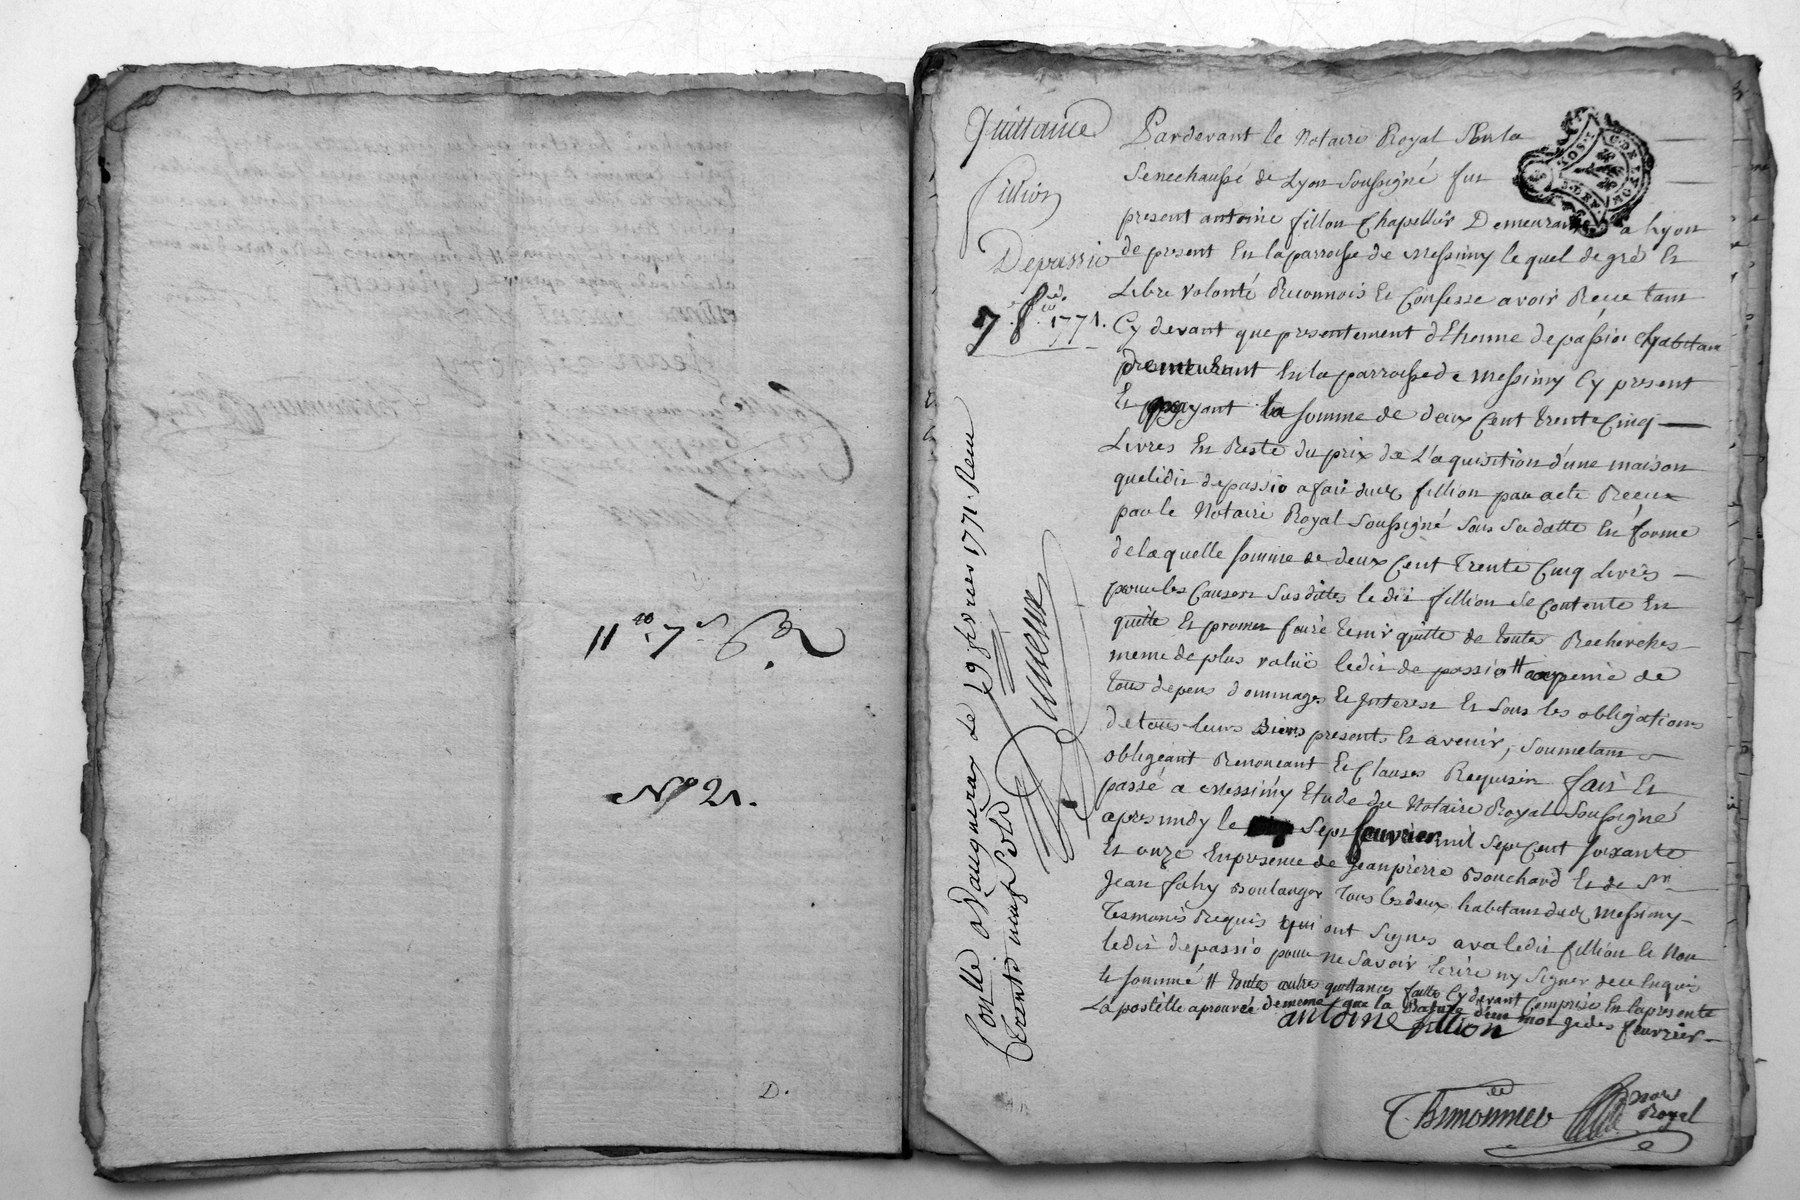 11.
No 21.
D.
Quittance
fillion
Depassio
7. f. 1771.
Pardevant le Notaire Royal En la
Senechaussé de Lyon Soussigné fut
present antoine fillon Chapellier Demeurant a Lyon
de present En la parroisse de Messimy le quel de gré Et
Libre volonté Reconnois Et Confesse avoir Receu tant
Cy devant que presentement d'Etienne depassio habitan
Demeurant En la parroisse de Messimy Cy present
Et payant la somme de deux Cent trente Cinq
Livres En Reste du prix de L'aquisition d'une maison
que ledit depassio a fait dud fillion par acte Receu
par le Notaire Royal Soussigné Sous Sa datte En forme
de laquelle somme de deux Cent Trente Cinq Livres
pour les Causes Susdittes le dit fillion Se Contente En
quitte Et promet faire tenir quitte de toutes Recherches
meme de plus valüe ledit de passio # a peine de
tous depens dommages Et Interest Et Sous les obligations
de tous leurs Biens presents Et avenir, Soumetant
obligeant Renoncant Et Clauses Requises fait Et
passé a Messimy Etude du Notaire Royal Soussigné
apres midy le Sept fevrier mil Sept Cent soixante
Et onze En presence de Jean pierre Bouchard Et de Sr
Jean fahy Boulanger tous les deux habitans dud Messimy
Tesmoins Requis qui ont Signés avec ledit fillion le Non
ledit depassio pour ne Savoir Ecrire ny Signer de ce Enquis
Et sommé # toutes autres quittances faites Cy devant Comprise En la presente
La postille aprouvée de meme que la Rature d'un mot fevrier
antoine fillion
Thimonnier Nore
Royal
Conllé a Vaugneray le 9 fevrier 1771. Receu
trente neuf sols